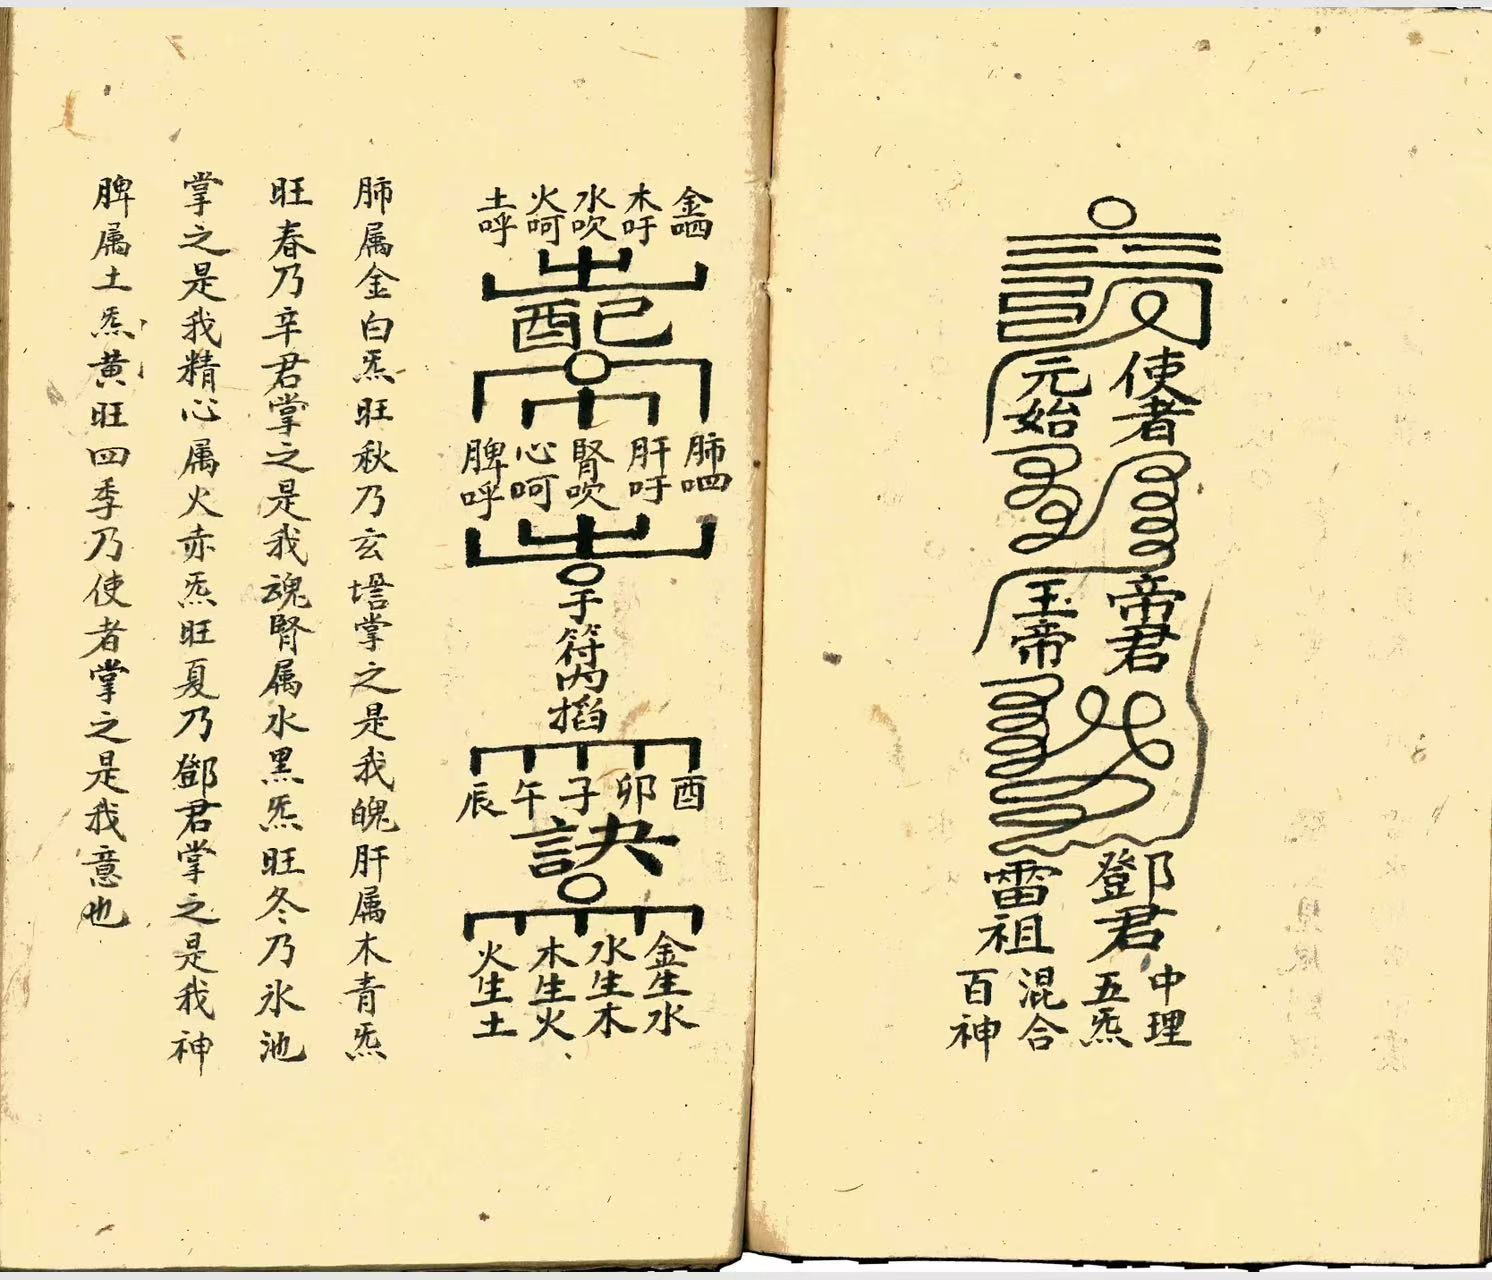 使者
元始
帝君
玉帝
鄧君
雷祖
中理
五炁
混合
百神
金呬
木吁
水吹
火呵
土呼
配
肺呬
肝吁
腎吹
心呵
脾呼
于符内搯
酉
卯
子
午
辰
訣
金生水
水生木
木生火
火生土
肺属金白炁旺秋乃玄壇掌之是我魄肝属木青炁
旺春乃辛君掌之是我魂腎属水黑炁旺冬乃氷池
掌之是我精心属火赤炁旺夏乃鄧君掌之是我神
脾属土炁黄旺四季乃使者掌之是我意也